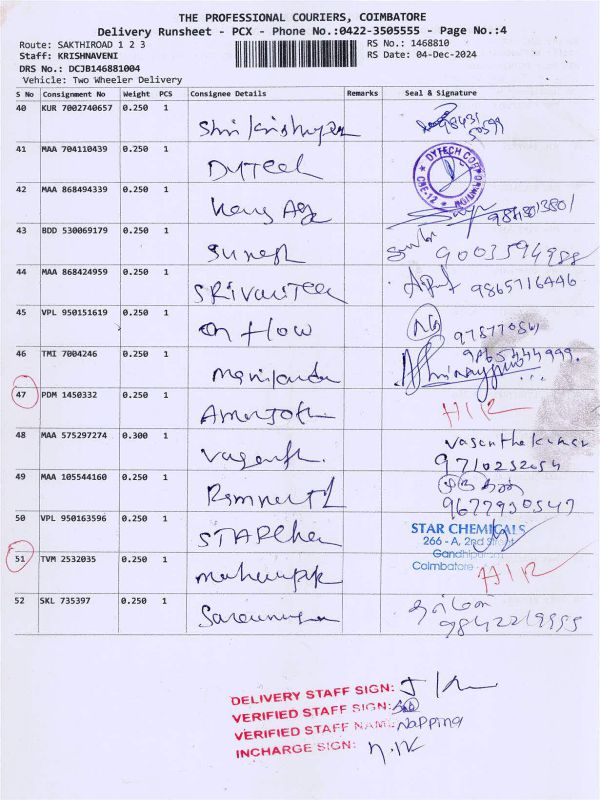 THE PROFESSIONAL COURIERS, COIMBATORE
Delivery Runsheet - PCX - Phone No.:0422-3505555 - Page No.:4
Route: SAKTHIROAD 1 2 3 RS No.: 1468810
Staff: KRISHNAVENI RS Date: 04-Dec-2024
DRS No.: DCJB146881004
Vehicle: Two Wheeler Delivery
S No Consignment No Weight PCS Consignee Details Remarks Seal & Signature
40 KUR 7002740657 0.250 1
41 MAA 704110439 0.250 1 DYTECH DYTECH CORP CBE-12
42 MAA 868494339 0.250 1
43 BDD 530069179 0.250 1 Suresh 9003594988
44 MAA 868424959 0.250 1 SRivariTech 9865716446
45 VPL 950151619 0.250 1 On flow
46 TMI 7004246 0.250 1 9865444999
47 PDM 1450332 0.250 1 AmmJoth HIR
48 MAA 575297274 0.300 1 Vasanth Vasanthakumar
9710252054
49 MAA 105544160 0.250 1
9677930547
50 VPL 950163596 0.250 1 STARChe STAR CHEMICALS
266 - A, 2nd Street
Gandhipuram
Coimbatore
51 TVM 2532035 0.250 1 HIR
52 SKL 735397 0.250 1 9842219955
DELIVERY STAFF SIGN:
VERIFIED STAFF SIGN:
VERIFIED STAFF NAME: Napping
INCHARGE SIGN: